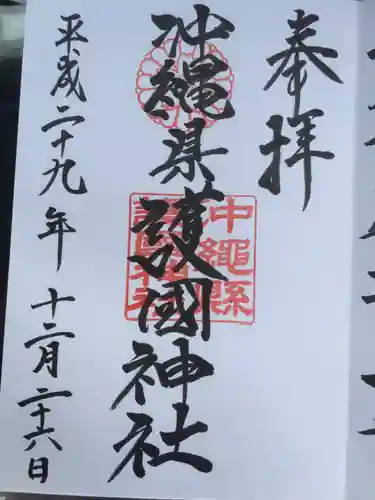 奉拝
沖縄県護國神社
沖繩縣護國神社
平成二十九年 十二月二十六日